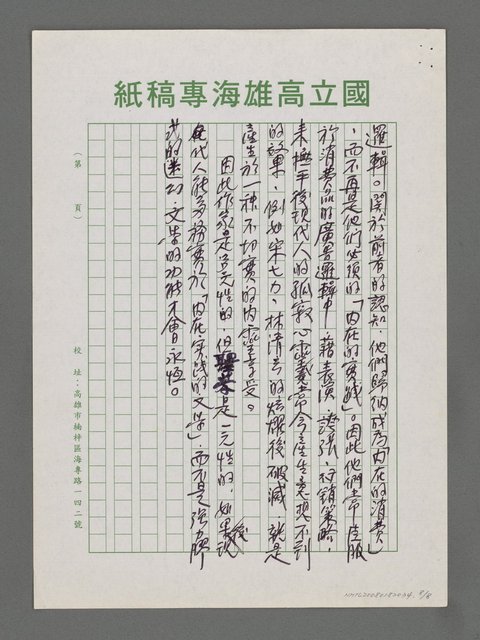 國立高雄海專稿紙
邏輯。關於前者的認知，他們歸納成為「內在的消費」
，而不再是他們必須的「內在的實踐」。因此他們常屈服
於消費品的廣告邏輯中，藉表演、誇張、行銷策略，
來撫平後現代人的孤寂心靈戴常令產生意想不到
的效果，例如宋七力、林清玄的炫耀後破滅，就是
產生於一種不切實的內靈享受。
因此作家是多元性的，但是一元性的，如果說
後代人能多務實於「內在實踐的文學」，而不是強力膠
式的迷幻，文學的功能才會永恆。
（第 頁）
校址：高雄市楠梓區海專路一四二號
NMTL20080182004 8/8